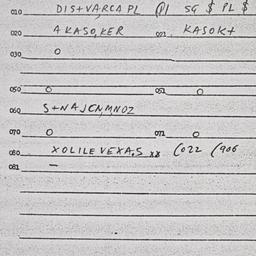 010 DIS+VARCA PL (P1 SG $ PL $
020 A KASO,KER 021 KASOK+
030 O
050 O 051 O
060 S+NAJCNMNOZ
070 O 071 O
080 XOLILEVEXA,S xx (022 (906
081 —